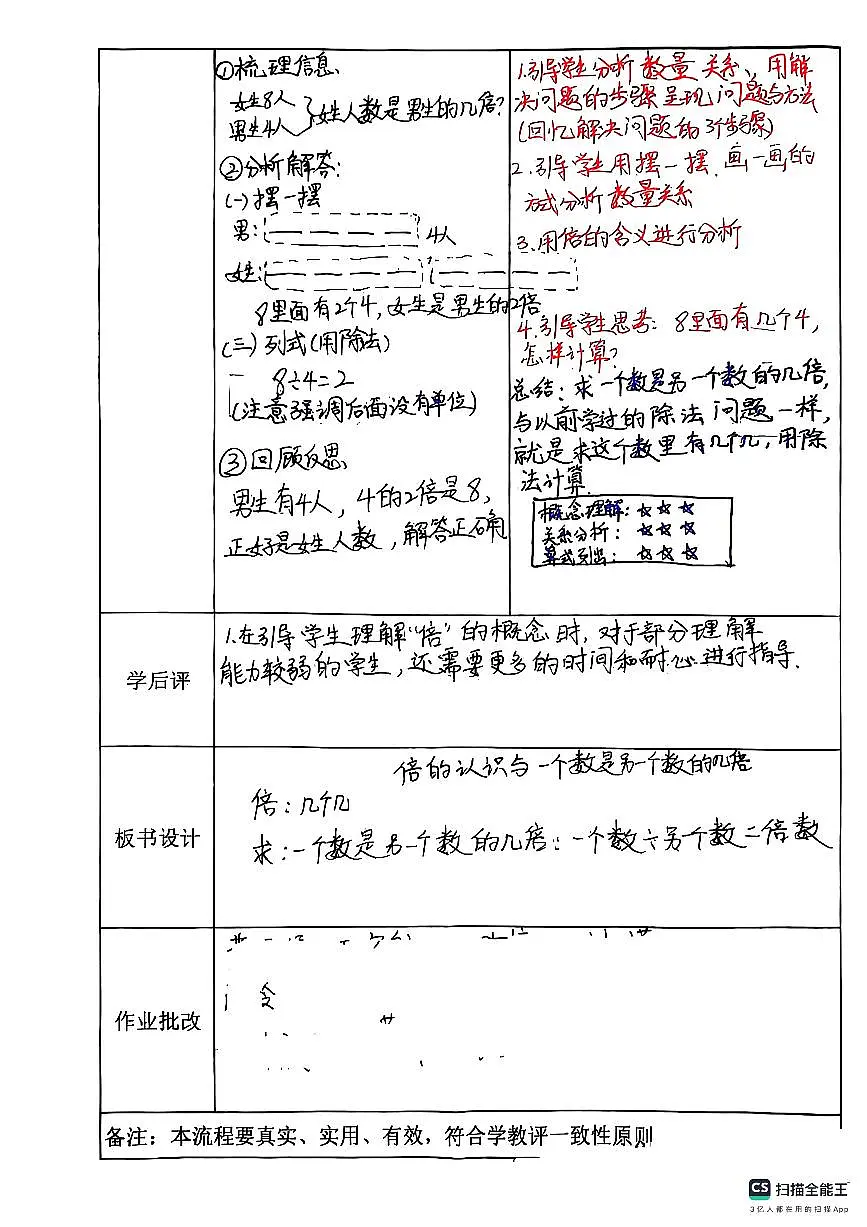 ①梳理信息
女生8人
男生4人 }女姓人数是男生的几倍?
②分析解答:
(一)摆一摆
男: 4人
女姓:
8里面有2个4,女生是男生的2倍
(三)列式(用除法)
8÷4=2
(注意强调后面没有单位)
③回顾反思
男生有4人,4的2倍是8,
正好是女生人数,解答正确
1.引导学生分析数量关系、用解
决问题的步骤呈现问题与方法
(回忆解决问题的3个步骤)
2.引导学生用摆一摆.画一画的
方式分析数量关系
3.用倍的含义进行分析
4.引导学生思考:8里面有几个4,
怎样计算?
总结:求一个数是另一个数的几倍,
与以前学过的除法问题一样,
就是求这个数里有几个几,用除
法计算.
概念理解:☆☆☆
关系分析:☆☆☆
算式列出:☆☆☆
学后评
1.在引导学生理解"倍"的概念时,对于部分理解
能力较弱的学生,还需要更多的时间和耐心进行指导.
板书设计
倍的认识与一个数是另一个数的几倍
倍:几个几
求:一个数是另一个数的几倍:一个数÷另一个数=倍数
作业批改
备注:本流程要真实、实用、有效,符合学教评一致性原则
CS 扫描全能王
3亿人都在用的扫描App